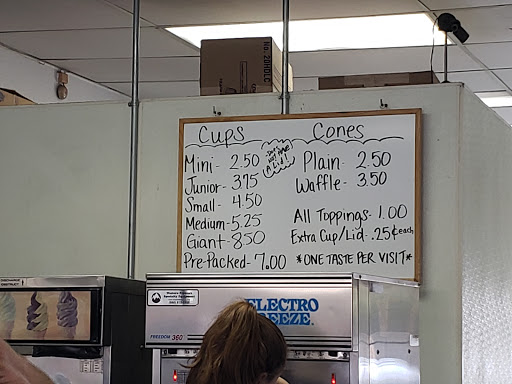 Cups
Mini- 2.50
Junior- 3.75
Small- 4.50
Medium- 5.25
Giant- 8.50
Pre-Packed- 7.00
A Lid!
Cones
Plain- 2.50
Waffle- 3.50
All Toppings- 1.00
Extra Cup/Lid- .25¢ each
*ONE TASTE PER VISIT*
ELECTRO
FREEZE.
FREEDOM 360